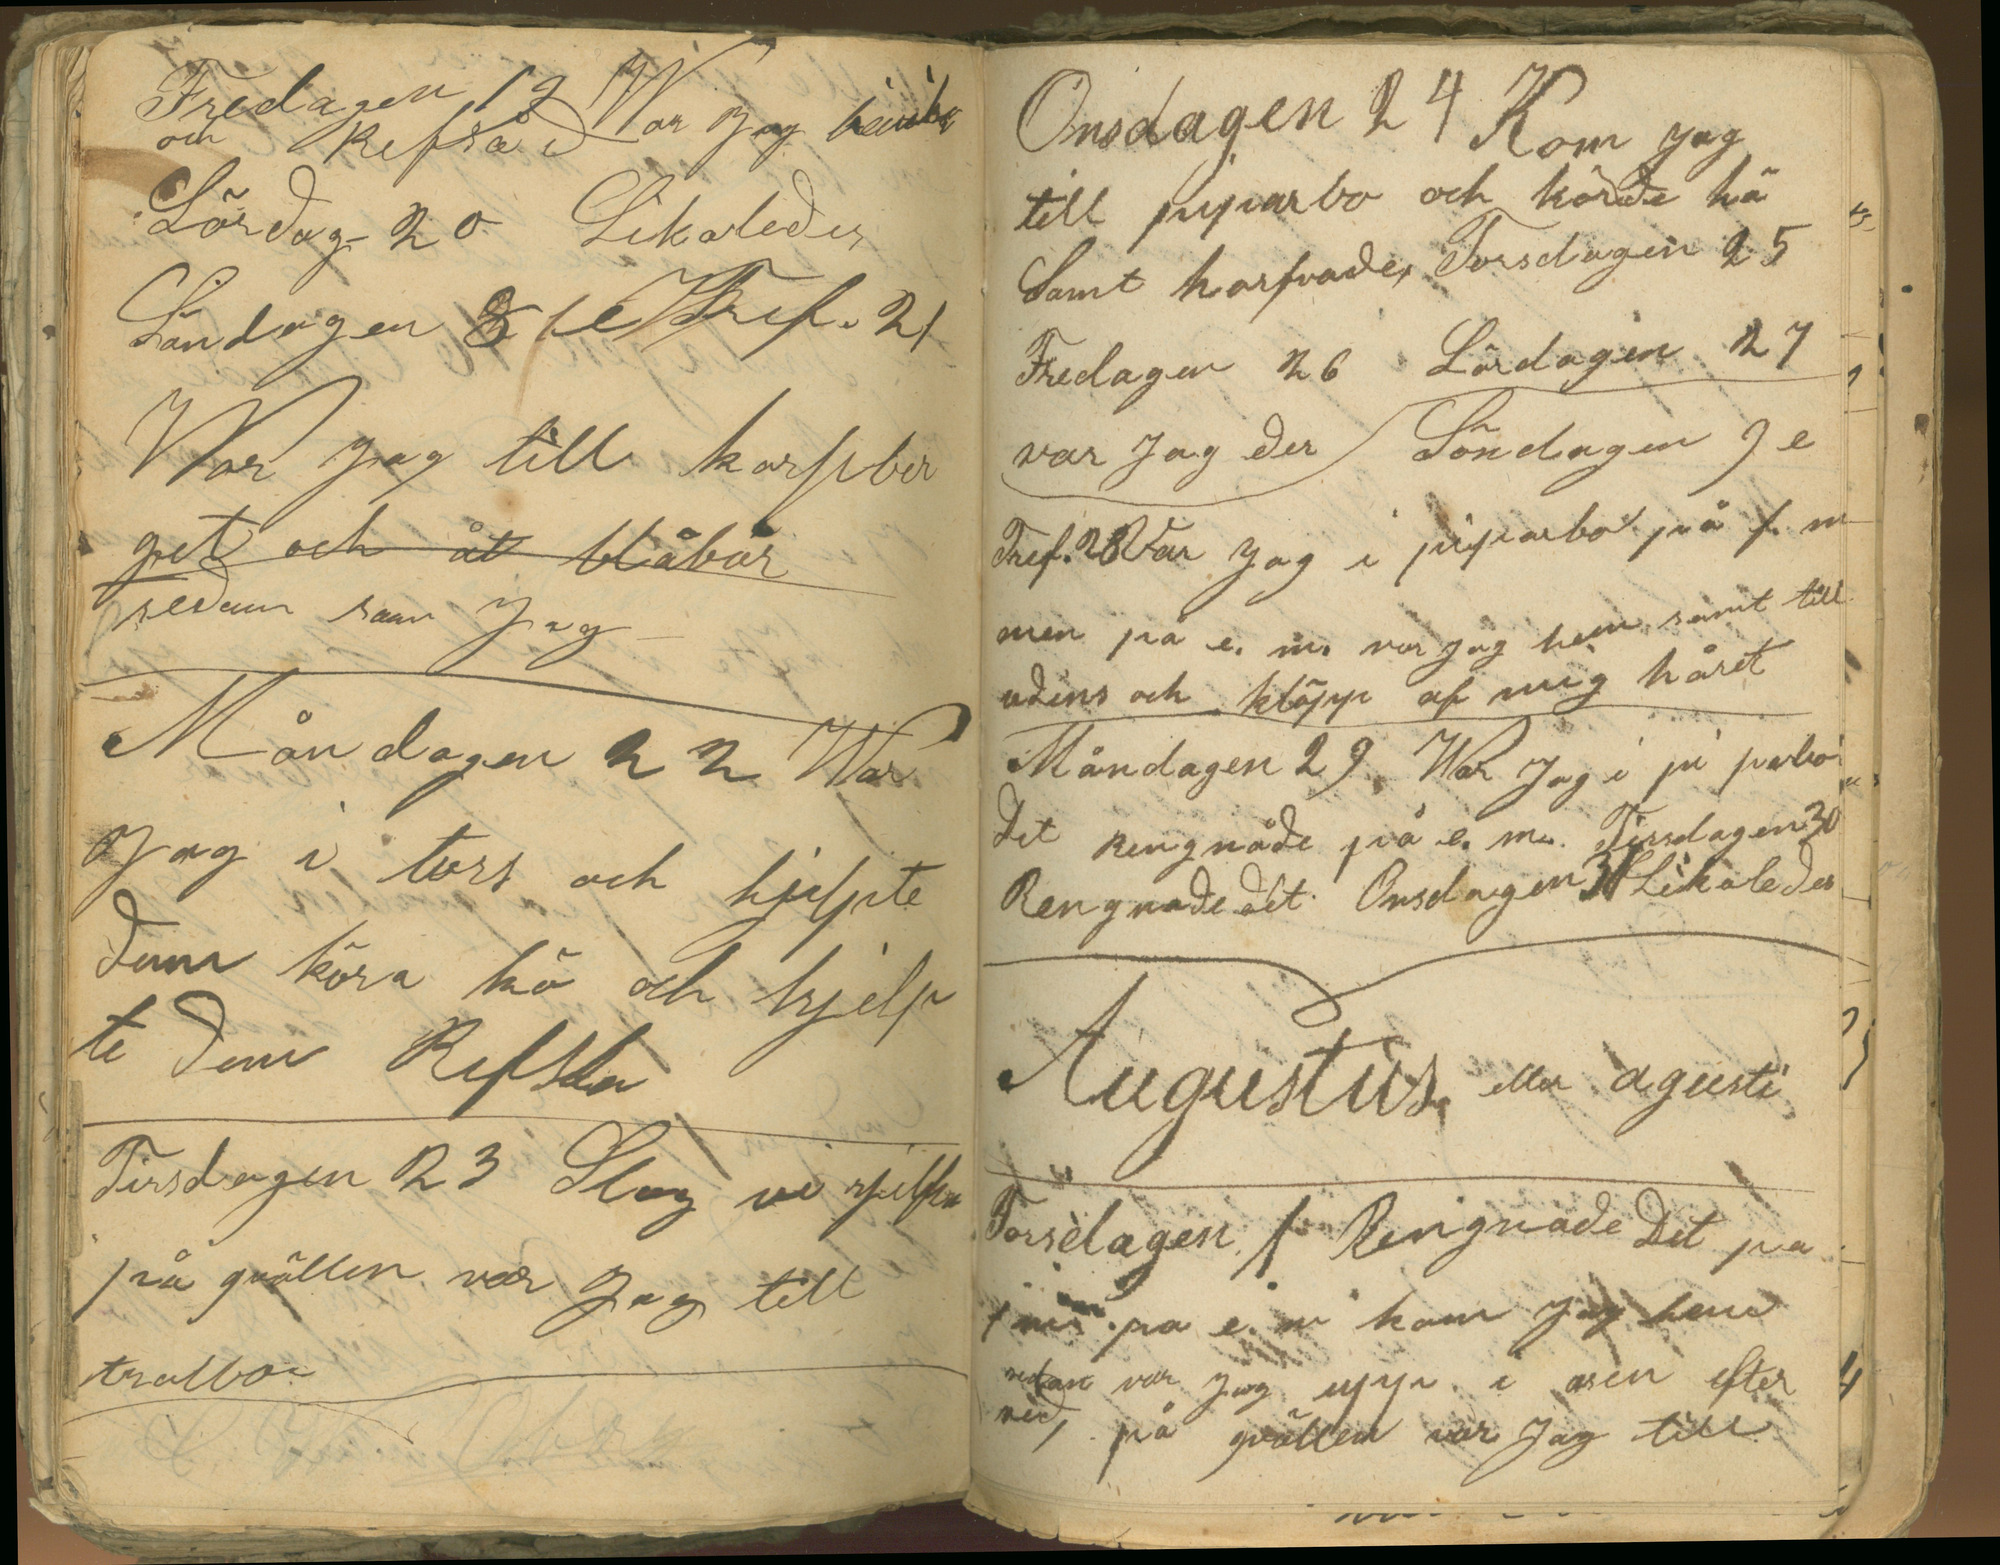 Fredagen 19 War Jag
och Refsade
Lördag 20 Likaledes
Söndagen 8 e Tref. 21
War Jag till karpber
get och åt blåbär
sedan sam Jag
Måndagen 22 War
Jag i tors och hjelpte
dem köra hö och hjelp
te dem Refsa
Tirsdagen 23 Slog vi sjelfva
på qvällen var Jag till
tralbo
Onsdagen 24 Kom Jag
till piparbo och körde hö
Samt harfvade, Torsdagen 25
Fredagen 26 Lördagen 27
var Jag der Söndagen 9 e
Tref. 28 Var Jag i piparbo på f. m
men på e. m. var Jag hem samt till
udens och klöpp af mig håret
Måndagen 29. War Jag i piparbo
Det rengnade på e. m. Tirsdagen 30
Rengnade det. Onsdagen 31 Likaledes
Augustus, eller agusti
Torsdagen 1 Rengnade Det pa
f m pa e. m kom Jag hem
sedan var Jag upp i åsen efter
ved, på qvällen var Jag till